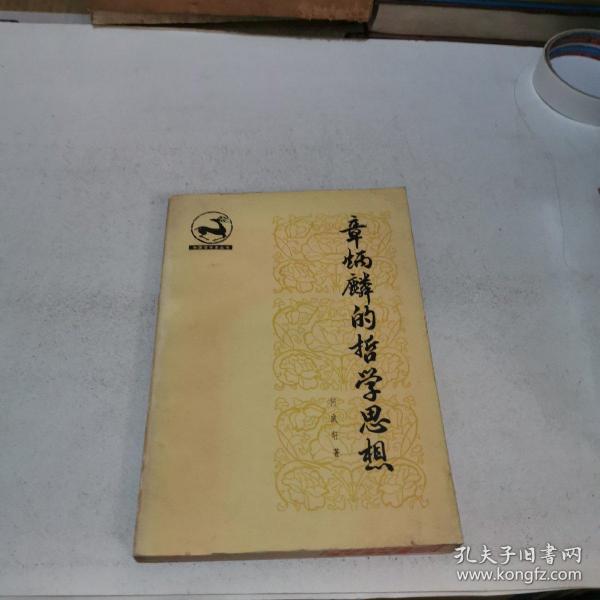 章炳麟的哲学思想
何成轩 著
孔夫子旧书网
www.kongfz.com